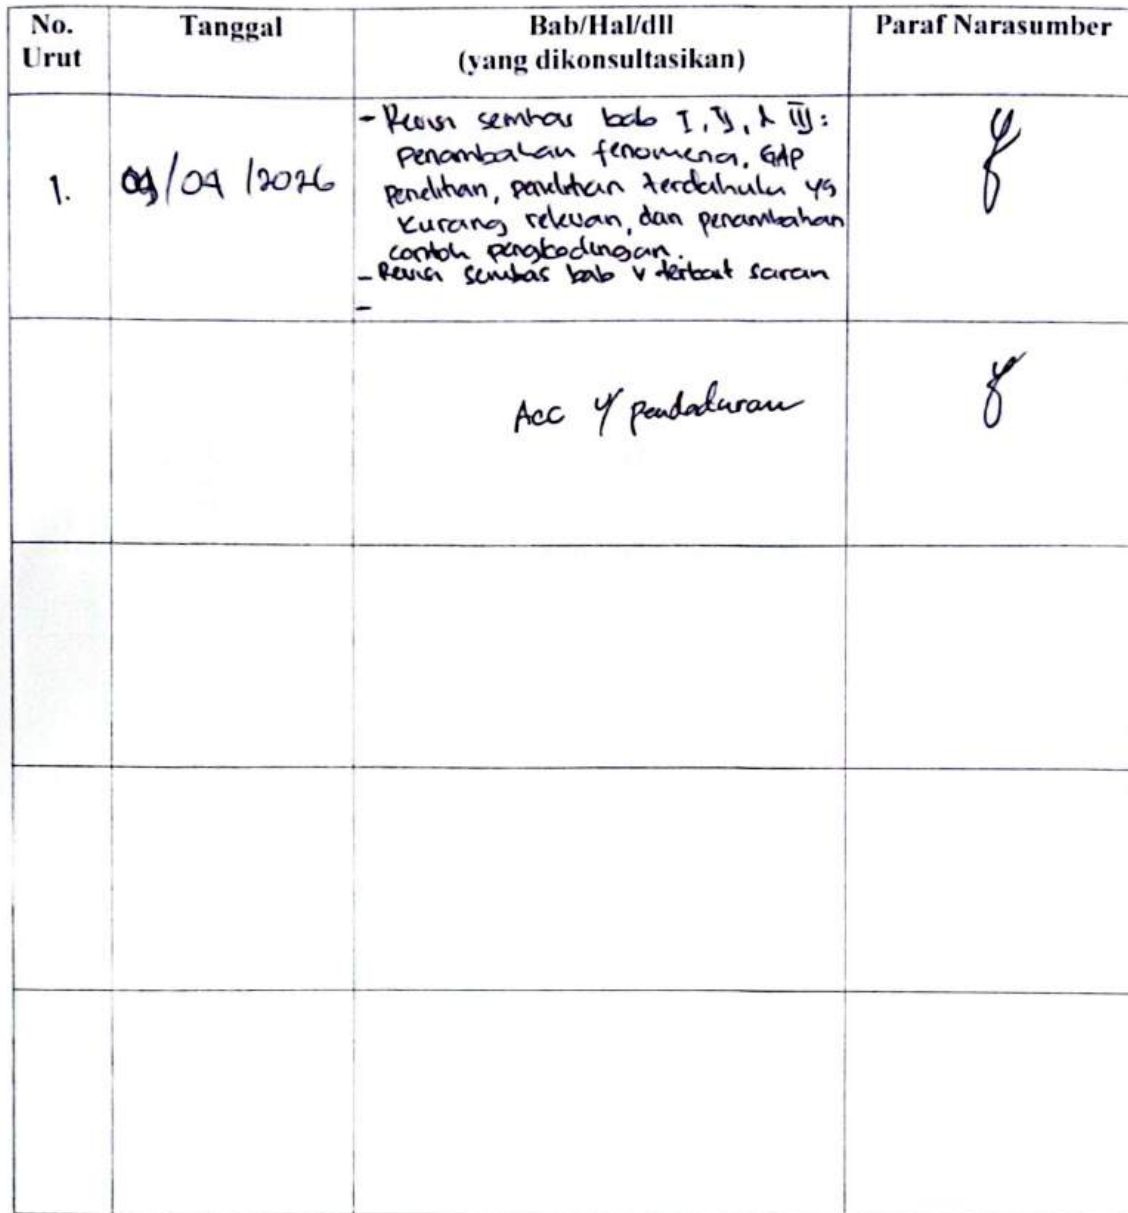 No. Urut
Tanggal
Bab/Hal/dll
(yang dikonsultasikan)
Paraf Narasumber
1.
09/04/2026
- Revisi semhas bab I, II, & III:
penambahan fenomena, GAP
penelitian, penelitian terdahulu yg
kurang relevan, dan penambahan
contoh pengkodingan.
- Revisi semhas bab V terkait saran
-
Acc u/ pendadaran